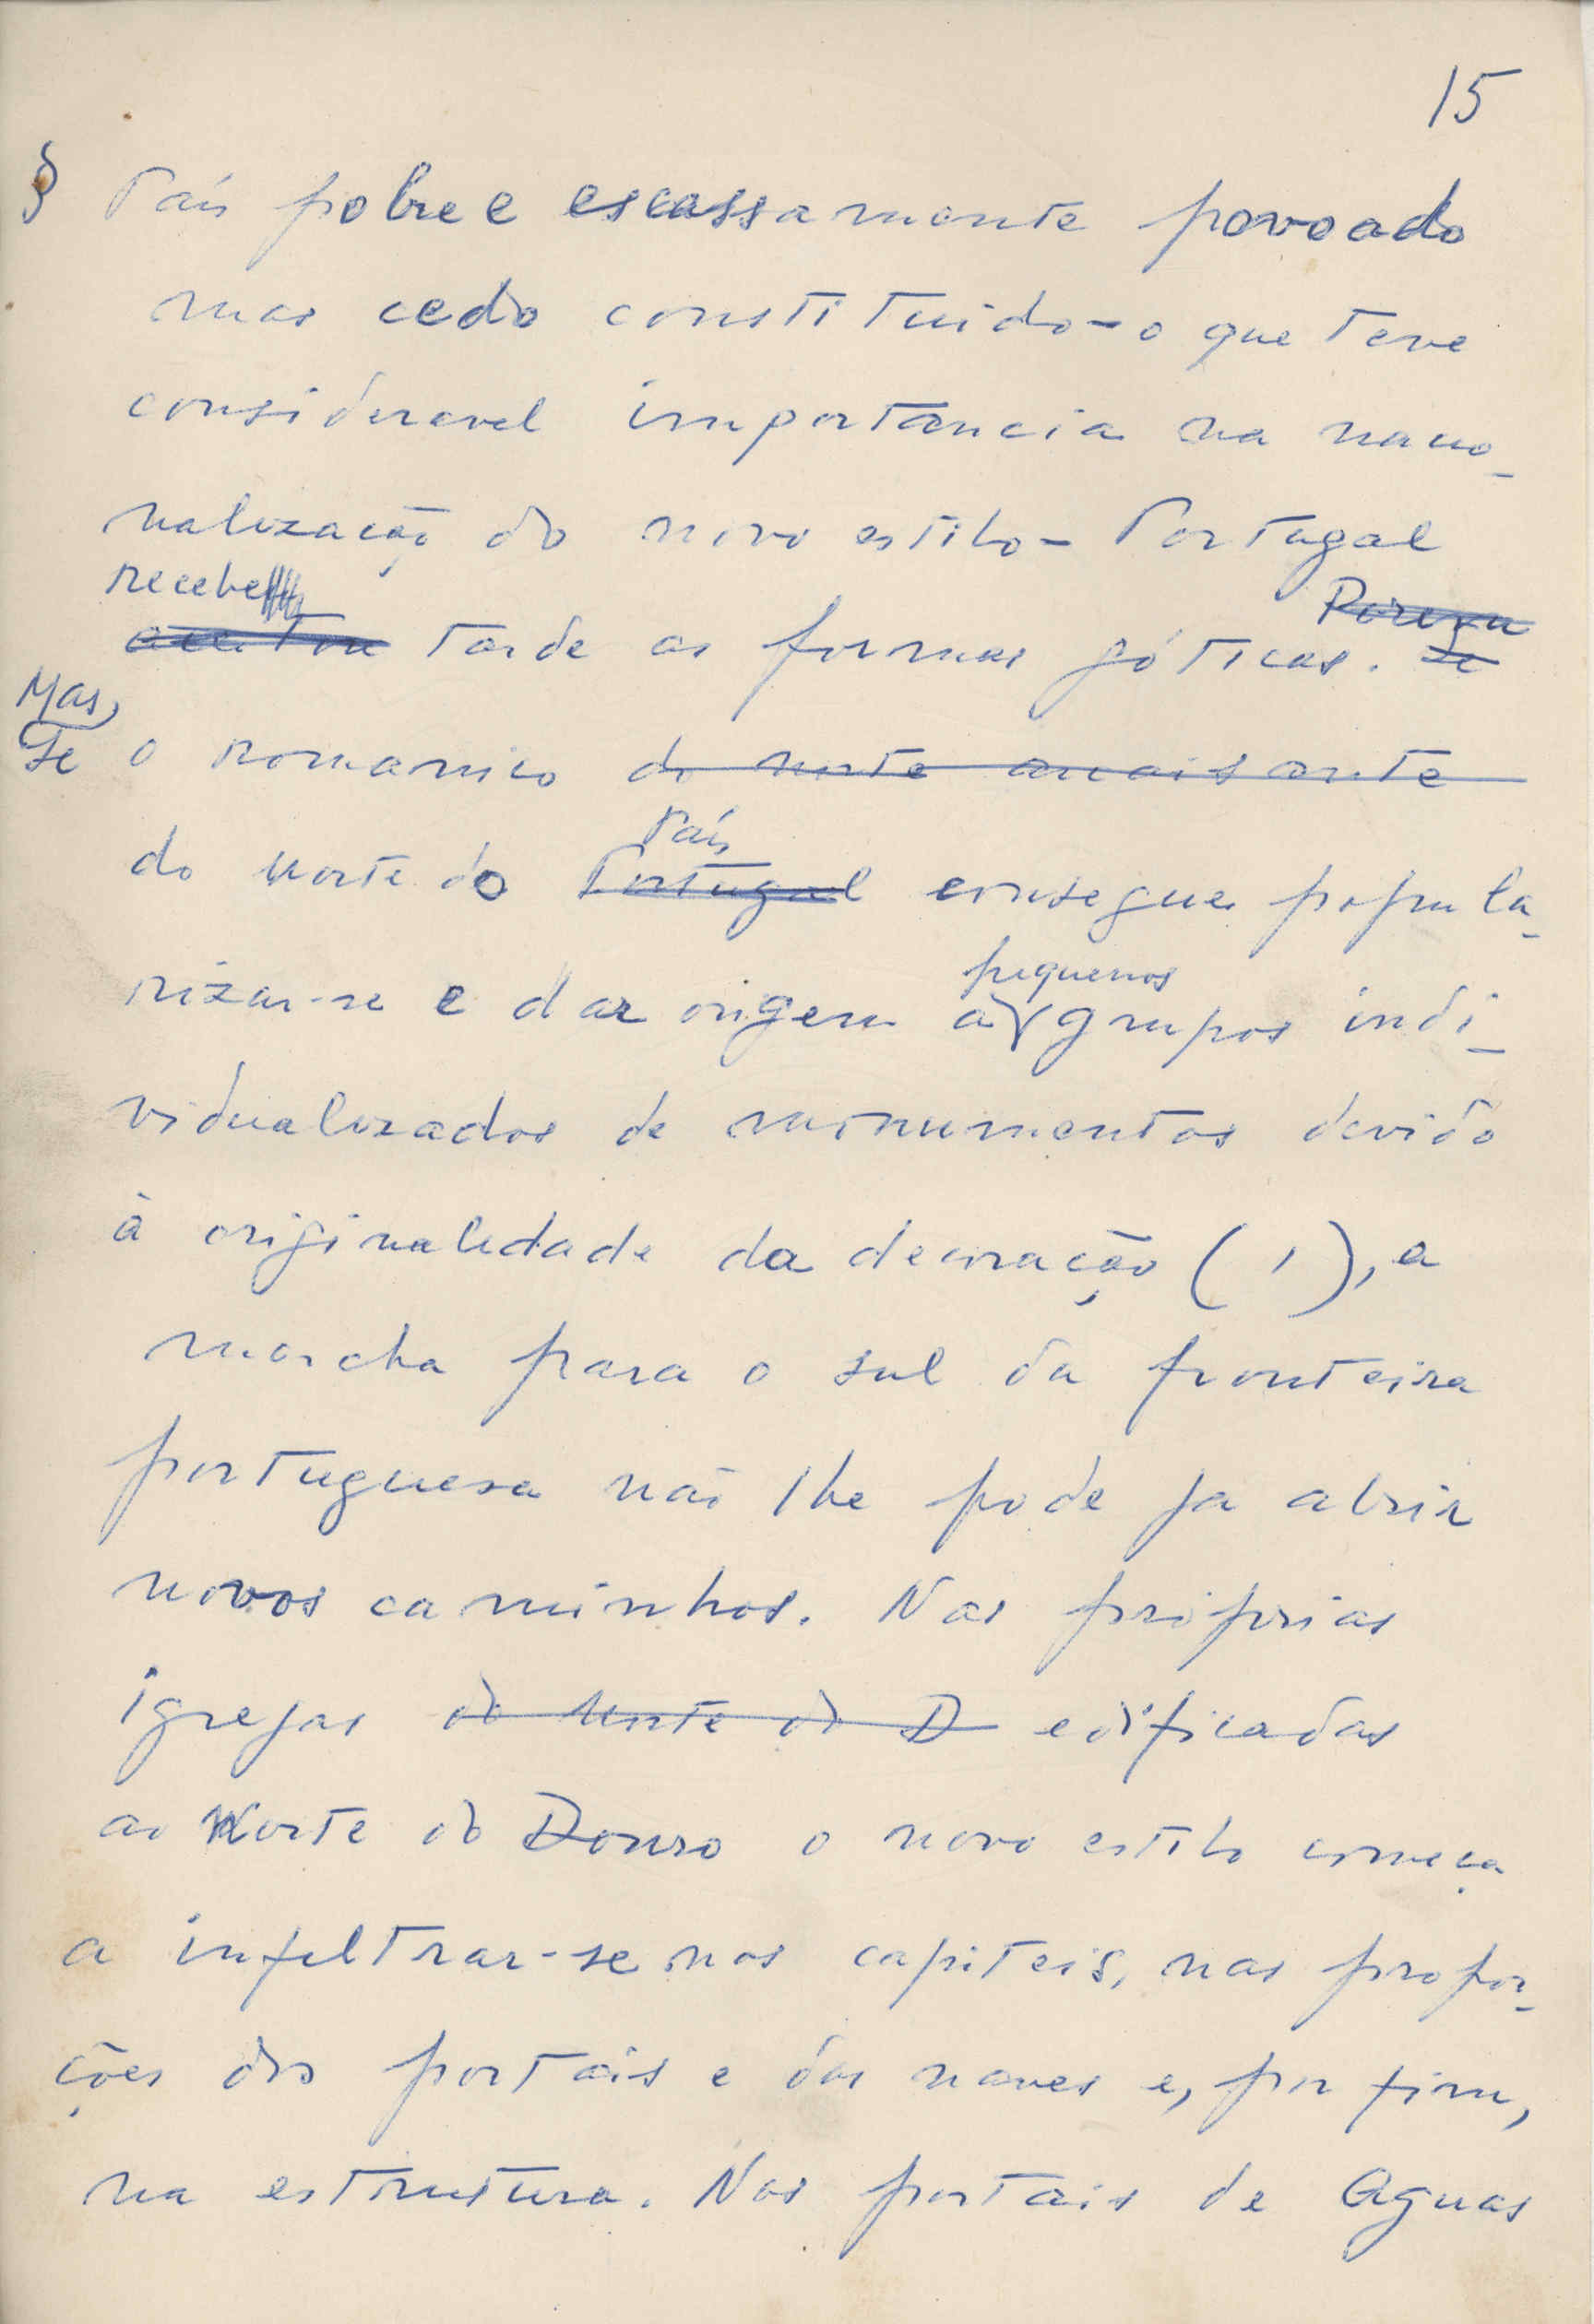 15
§ País pobre e escassamente povoado
mas cedo constituido - o que teve
consideravel importancia na nacio-
nalização do novo estilo - Portugal
recebe
aceitou tarde as formas góticas. Porem se
Mas,
se o romanico do norte mais ante
País
do Norte do Portugal consegue popula-
pequenos
rizar-se e dar origem a grupos indi-
vidualizados de monumentos devido
à originalidade da decoração (1), a
marcha para o sul da fronteira
portuguesa não lhe pode ja abrir
novos caminhos. Nas próprias
igrejas do Norte do D edificadas
ao Norte do Douro o novo estilo começa
a infiltrar-se nos capiteis, nas propor-
ções dos portais e das naves e, por fim,
na estrutura. Nos portais de Aguas